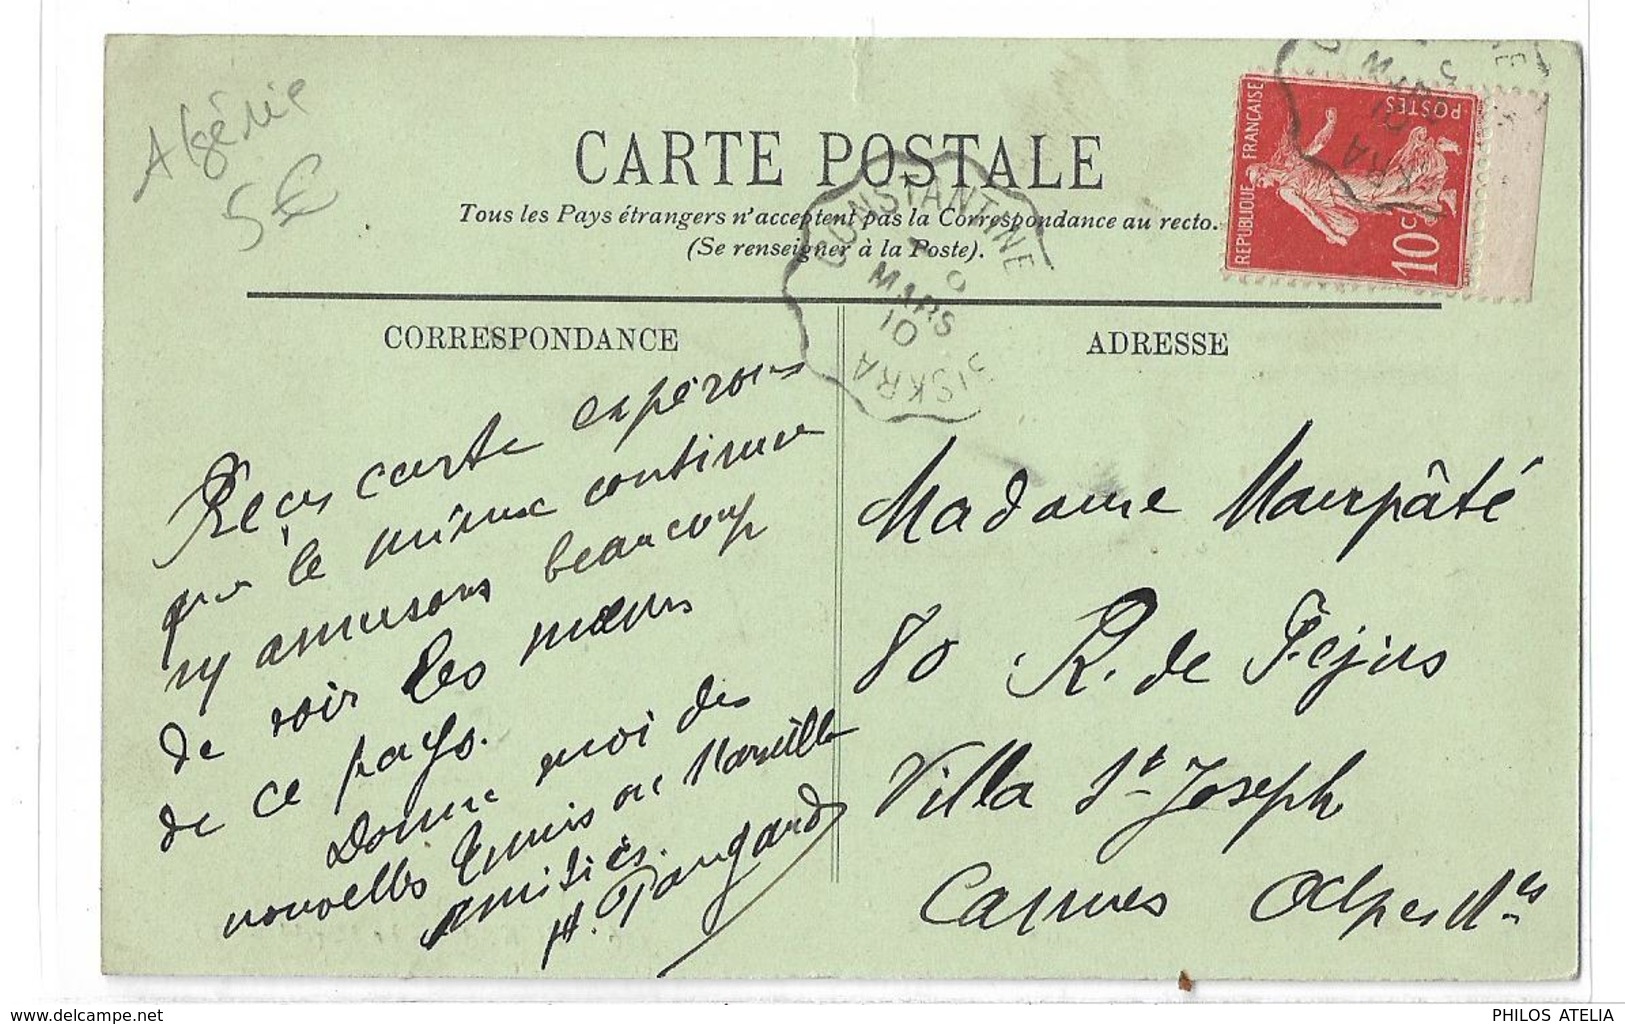 Algérie
5€
CARTE POSTALE
Tous les Pays étrangers n'acceptent pas la Correspondance au recto.
(Se renseigner à la Poste).
REPUBLIQUE FRANÇAISE
POSTES
10c
CONSTANTINE
MARS
10
BISKRA
CORRESPONDANCE
Reçu carte espérons
que le mieux continue
ny amusons beaucoup
de voir les mœurs
de ce pays.
Donne moi des
nouvelles Tunis ou Marseille
amitiés.
ADRESSE
Madame Maupâté
80 R. de Fréjus
Villa St Joseph
Cannes Alpes Mes
www.delcampe.net
PHILOS ATELIA